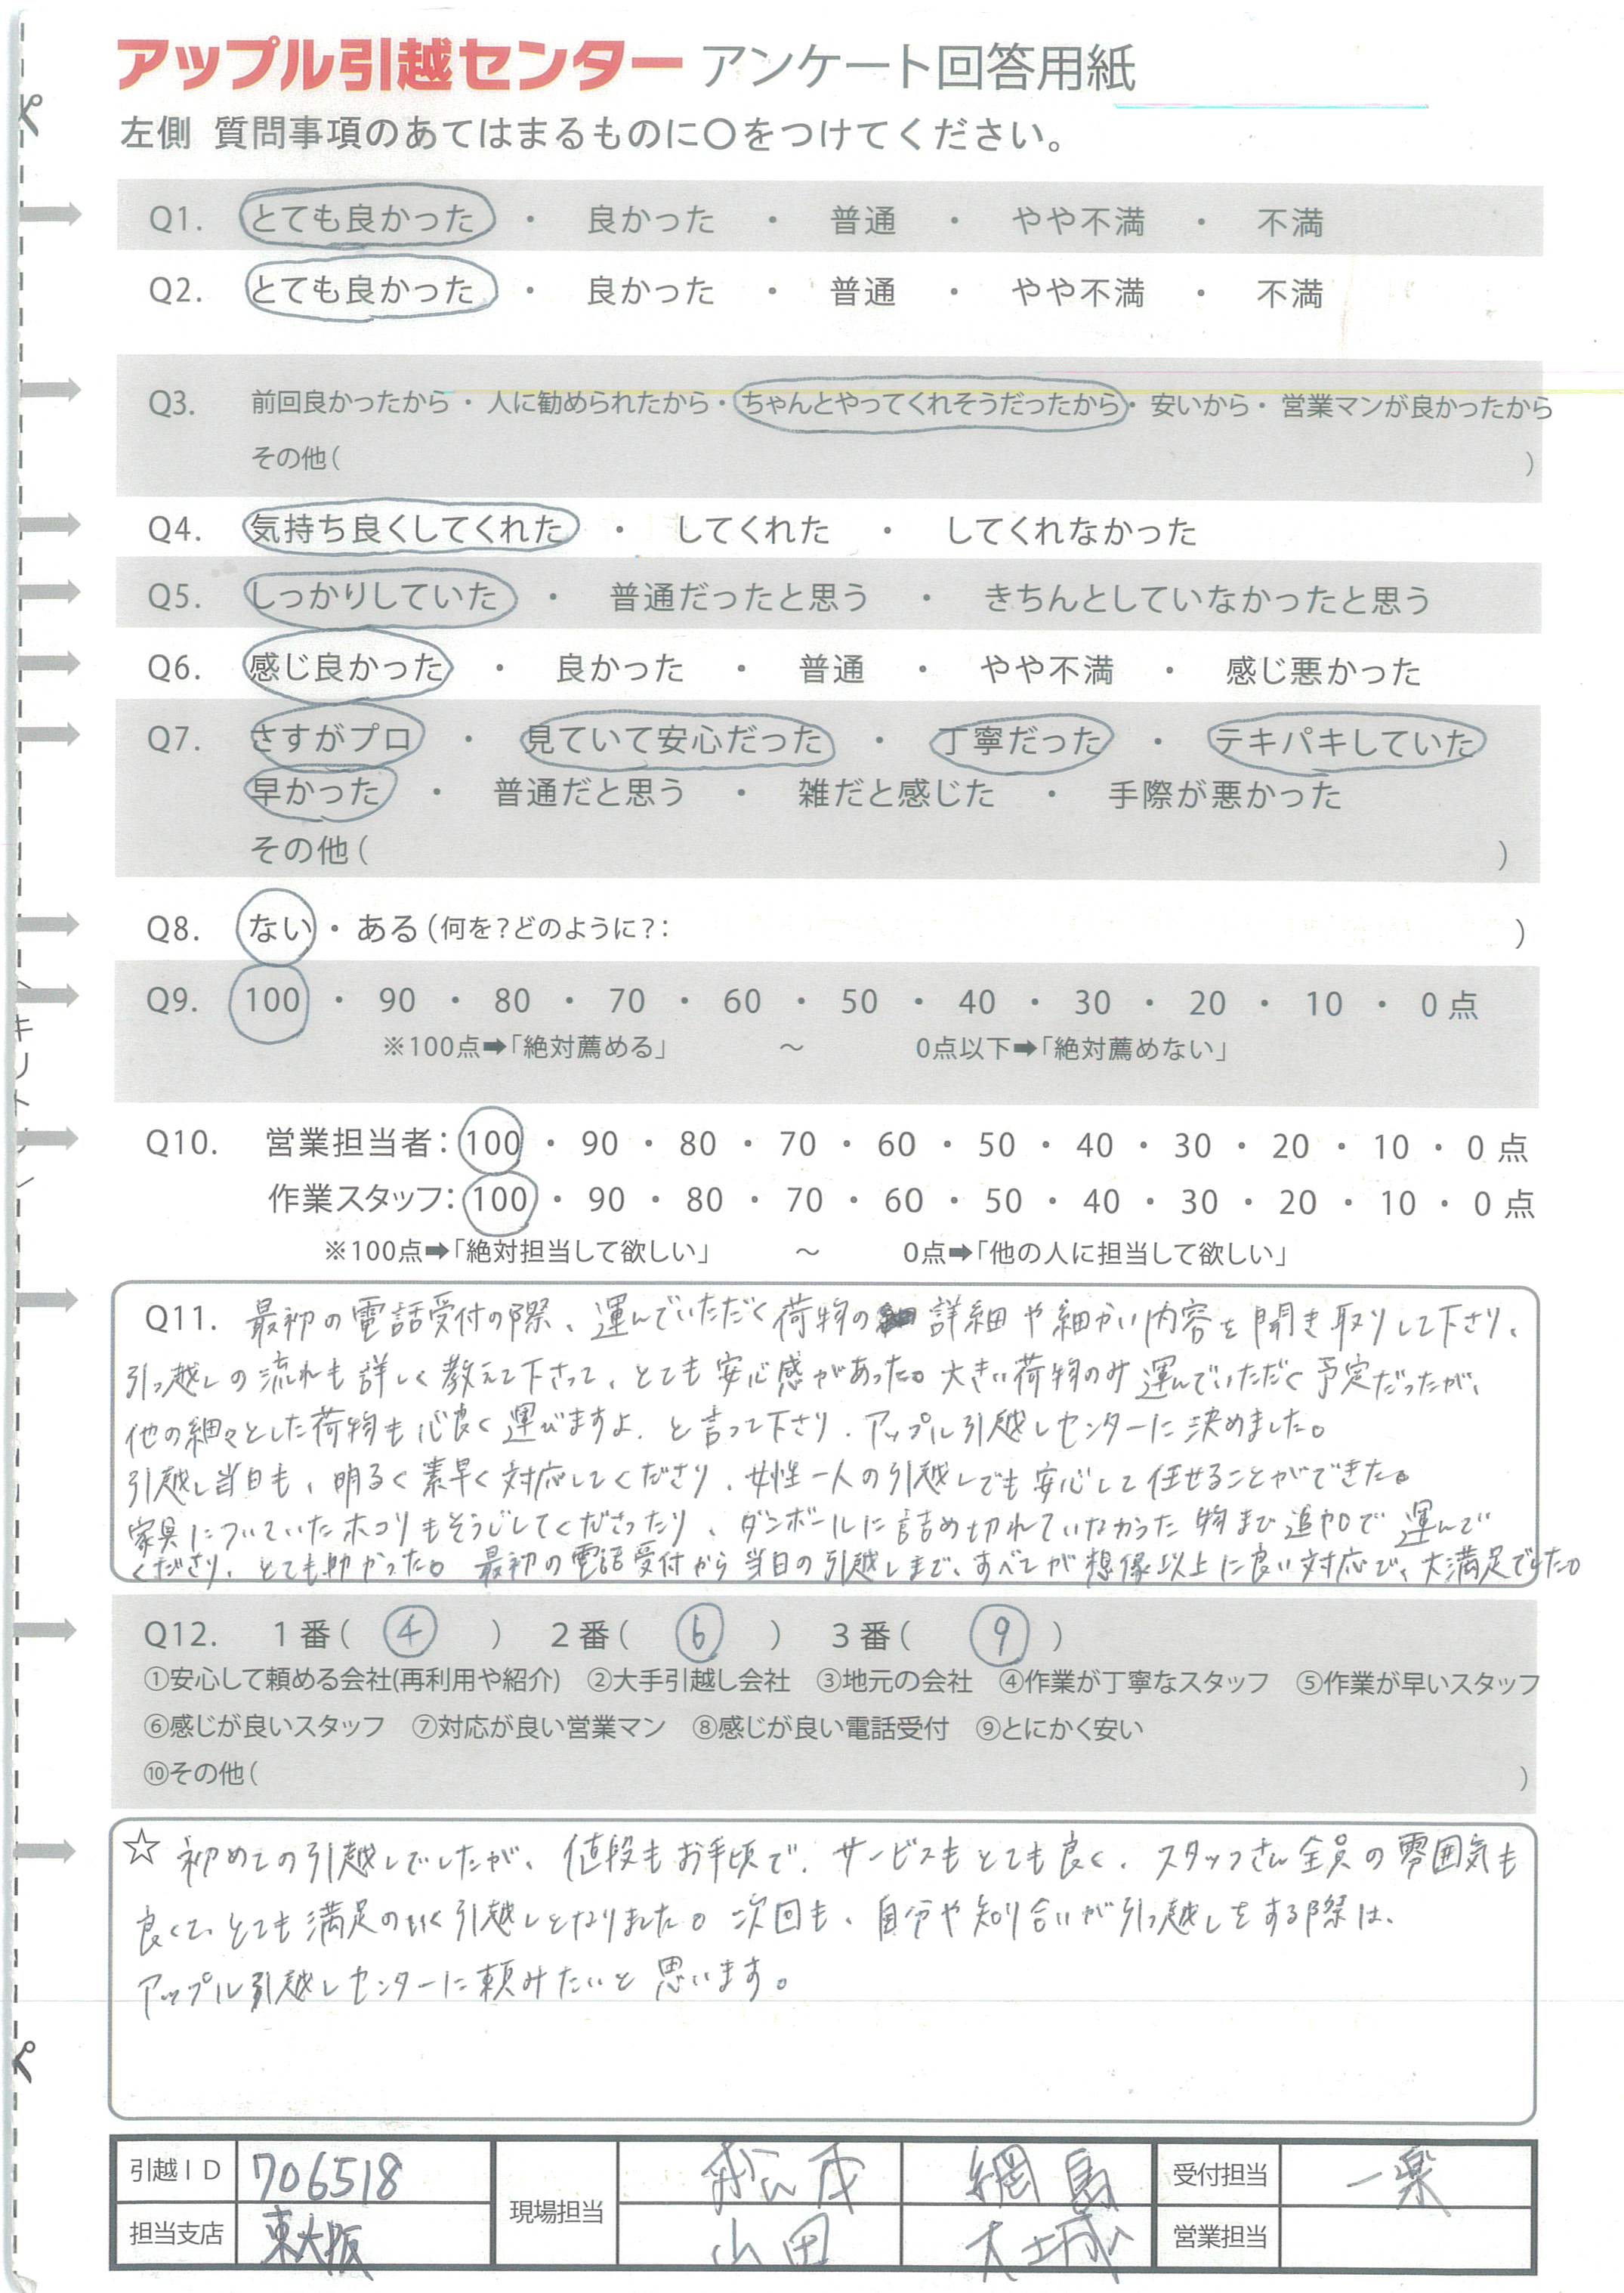 アップル引越センター アンケート回答用紙
左側 質問事項のあてはまるものに○をつけてください。
Q1. とても良かった ・ 良かった ・ 普通 ・ やや不満 ・ 不満
Q2. とても良かった ・ 良かった ・ 普通 ・ やや不満 ・ 不満
Q3. 前回良かったから・人に勧められたから・ちゃんとやってくれそうだったから・安いから・営業マンが良かったから
その他( )
Q4. 気持ち良くしてくれた ・ してくれた ・ してくれなかった
Q5. しっかりしていた ・ 普通だったと思う ・ きちんとしていなかったと思う
Q6. 感じ良かった ・ 良かった ・ 普通 ・ やや不満 ・ 感じ悪かった
Q7. さすがプロ ・ 見ていて安心だった ・ 丁寧だった ・ テキパキしていた
早かった ・ 普通だと思う ・ 雑だと感じた ・ 手際が悪かった
その他( )
Q8. ない・ある(何を?どのように?: )
Q9. 100 ・ 90 ・ 80 ・ 70 ・ 60 ・ 50 ・ 40 ・ 30 ・ 20 ・ 10 ・ 0点
※100点➡「絶対薦める」 ～ 0点以下➡「絶対薦めない」
Q10. 営業担当者:100 ・ 90 ・ 80 ・ 70 ・ 60 ・ 50 ・ 40 ・ 30 ・ 20 ・ 10 ・ 0点
作業スタッフ:100 ・ 90 ・ 80 ・ 70 ・ 60 ・ 50 ・ 40 ・ 30 ・ 20 ・ 10 ・ 0点
※100点➡「絶対担当して欲しい」 ～ 0点➡「他の人に担当して欲しい」
Q11. 最初の電話受付の際、運んでいただく荷物の詳細や細かい内容を聞き取りして下さり、
引っ越しの流れも詳しく教えて下さって、とても安心感があった。大きい荷物のみ運んでいただく予定だったが、
他の細々とした荷物も心良く運びますよ、と言って下さり、アップル引越しセンターに決めました。
引越し当日も、明るく素早く対応してくださり、女性一人の引越しでも安心して任せることができた。
家具についていたホコリもそうじしてくださったり、ダンボールに詰め切れていなかった物まで追加で運んで
くださり、とても助かった。最初の電話受付から当日の引越しまで、すべてが想像以上に良い対応で、大満足でした。
Q12. 1番( ④ ) 2番( ⑥ ) 3番( ⑨ )
①安心して頼める会社(再利用や紹介) ②大手引越し会社 ③地元の会社 ④作業が丁寧なスタッフ ⑤作業が早いスタッフ
⑥感じが良いスタッフ ⑦対応が良い営業マン ⑧感じが良い電話受付 ⑨とにかく安い
⑩その他( )
☆ 初めての引越しでしたが、値段もお手頃で、サービスもとても良く、スタッフさん全員の雰囲気も
良くて、とても満足のいく引越しとなりました。次回も、自分や知り合いが引っ越しをする際は、
アップル引越しセンターに頼みたいと思います。
引越ID 706518 現場担当 松茂 綱島 受付担当 一楽
担当支店 東大阪 山田 大城 営業担当
キリトリ